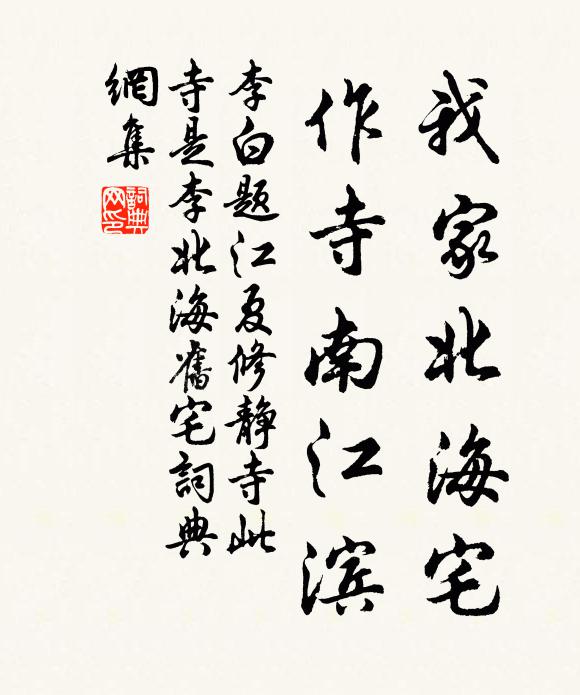 我家北海宅
作寺南江滨
李白题江夏修静寺此
寺是李北海舊宅詞典
網集
詞典网印